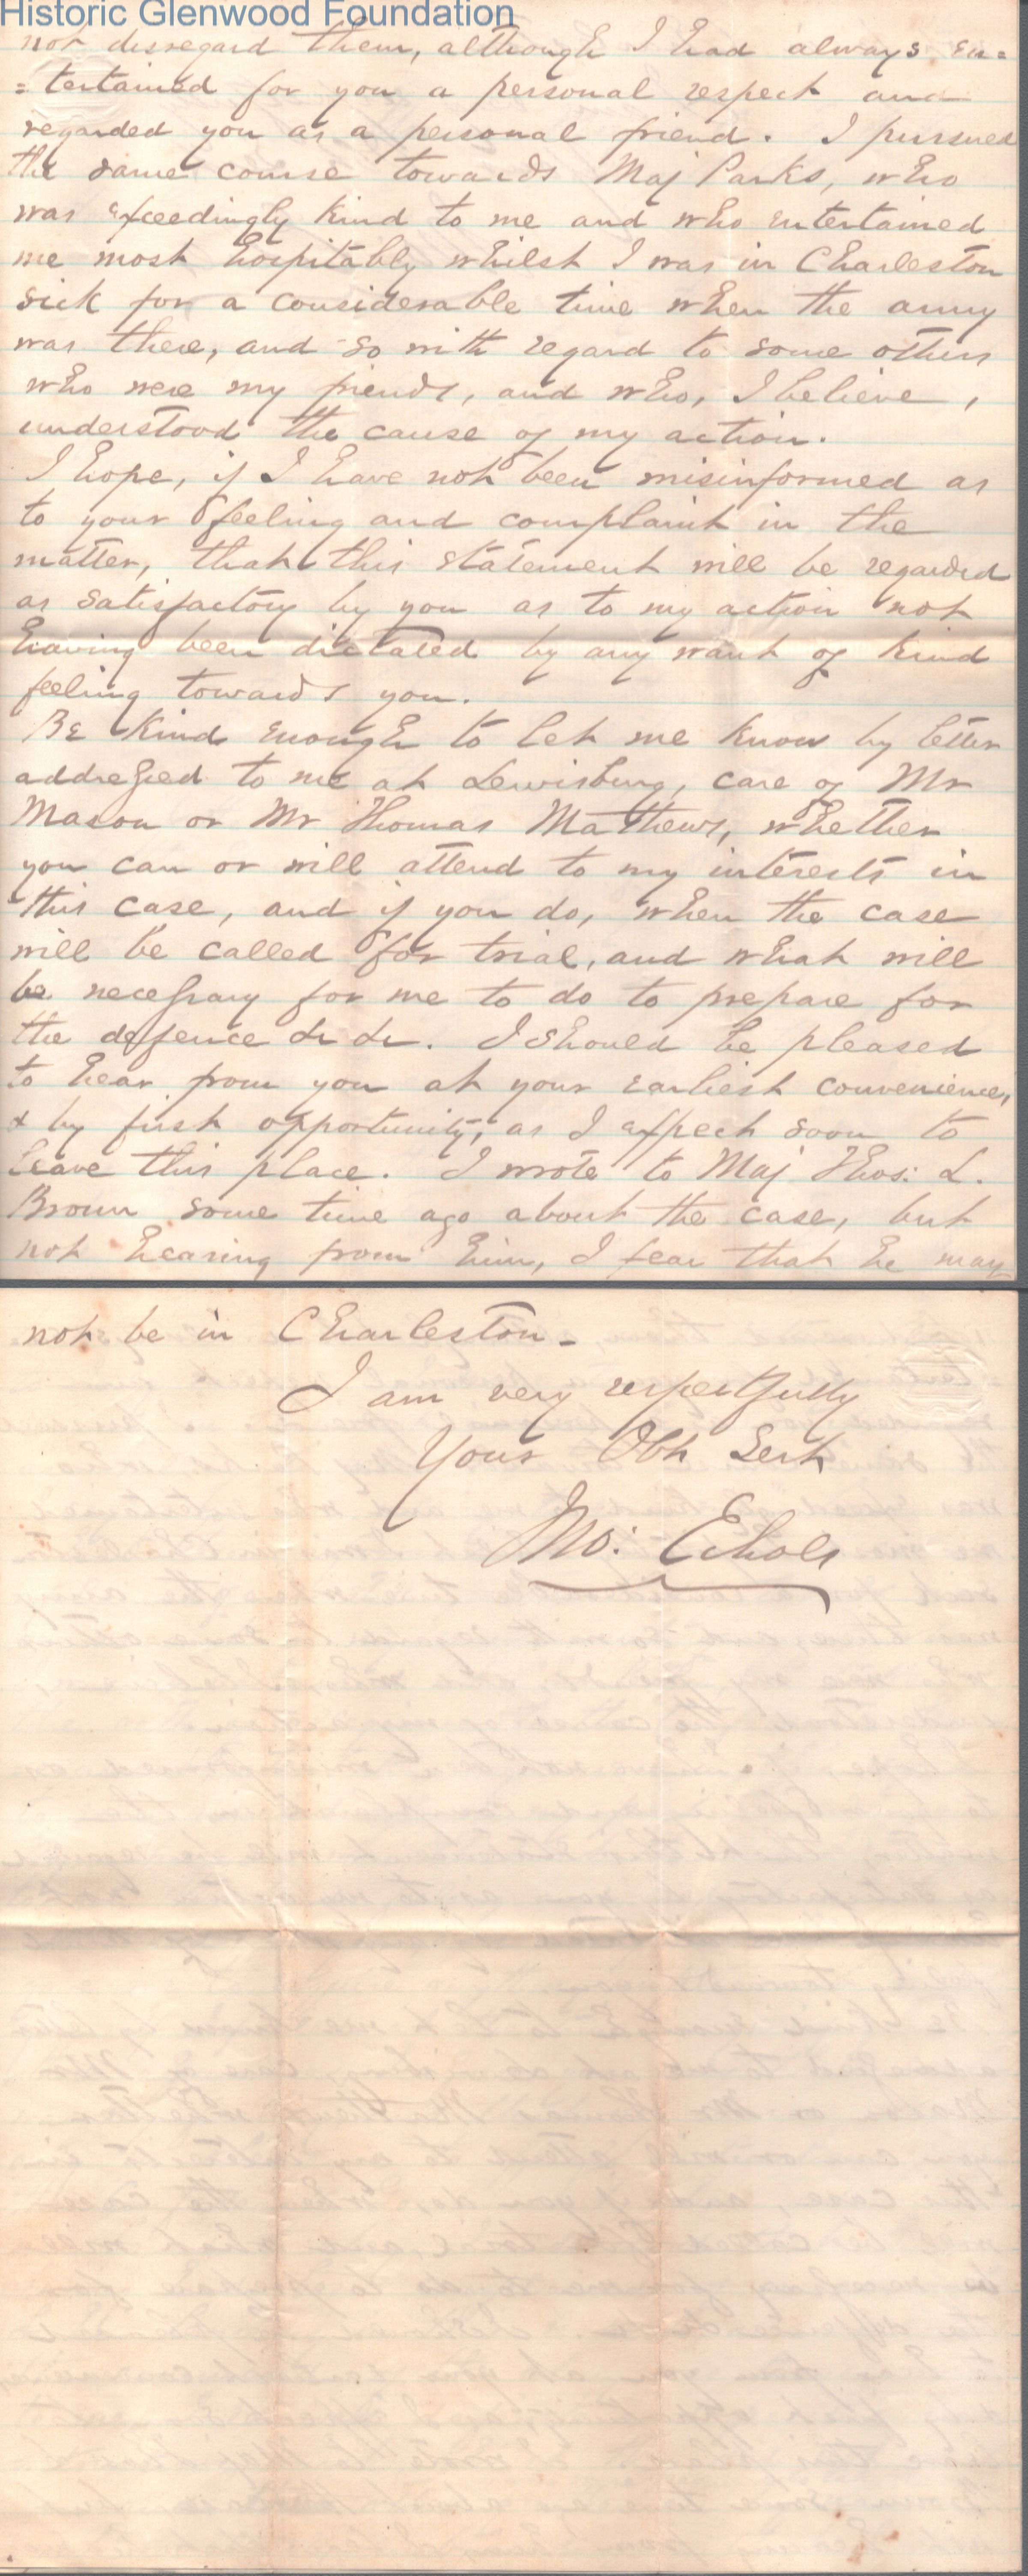 Historic Glenwood Foundation
not disregard them, although I had always en=
=tertained for you a personal respect and
regarded you as a personal friend. I pursued
the same course towards Maj Parks, who
was exceedingly kind to me and who entertained
me most hospitably whilst I was in Charleston
sick for a considerable time when the army
was there, and so with regard to some others
who were my friends, and who, I believe,
understood the cause of my action.
I hope, if I have not been misinformed as
to your feeling and complaint in the
matter, that this statement will be regarded
as satisfactory by you as to my action not
having been dictated by any want of kind
feeling towards you.
Be kind enough to let me know by letter
addressed to me at Lewisburg, care of Mr
Mason or Mr Thomas Mathews, whether
you can or will attend to my interests in
this case, and if you do, when the case
will be called for trial, and what will
be necessary for me to do to prepare for
the deffence &c &c. I should be pleased
to hear from you at your earliest convenience,
& by first opportunity, as I expect soon to
leave this place. I wrote to Maj Thos: L.
Broun some time ago about the case, but
not hearing from him, I fear that he may
not be in Charleston_
I am very respectfully
Your Obt Sert
Jno: Echols